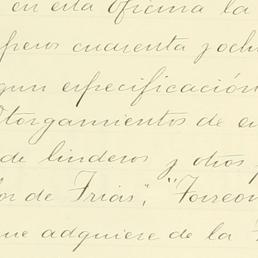 en esta oficina la
pesos cuarenta y och
gun especificación
Otorgamientos de en
de linderos y otros
or de Frias", "Torreon
que adquiere de la